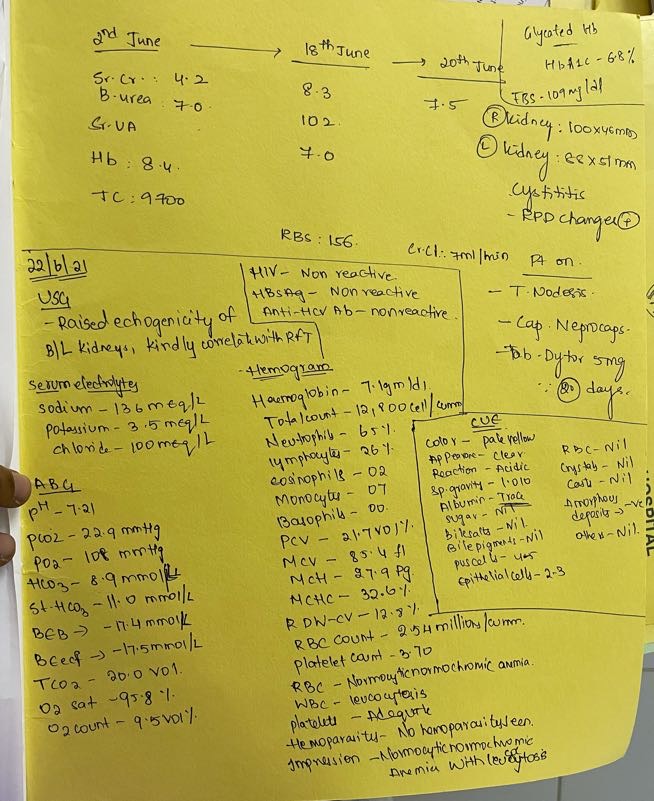 2nd June → 18th June → 20th June
Sr. Cr. : 4.2 8.3 7.5
B. urea : 70 102
Sr. UA 7.0
Hb : 8.4
TC : 9700
Glycated Hb
HbA1c - 6.8%
FBS - 109 mg/dl
(R) kidney : 100x46mm
(L) kidney : 88 x 51 mm
Cystitis
- RPD changes (+)
RBS : 156
Cr.Cl: 7ml/min
Pt on
- T. Nodosis
- Cap. Neprocaps
- Tab. Dytor 5mg
days.
22/6/21
USG
- Raised echogenicity of
B/L kidneys, kindly correlate with RFT
HIV - Non reactive.
HBsAg - Non reactive
Anti-HCV Ab - nonreactive.
Serum electrolytes
Sodium - 136 meq/L
Potassium - 3.5 meq/L
Chloride - 100 meq/L
ABG
pH - 7.21
pCO2 - 22.9 mmHg
pO2 - 108 mmHg
HCO3 - 8.9 mmol/L
St. HCO3 - 11.0 mmol/L
BEB → -17.4 mmol/L
BEecf → -17.5 mmol/L
TCO2 - 20.0 VOl.
O2 sat - 95.8 %.
O2 count - 9.5 vol%.
- Hemogram
Haemoglobin - 7.1gm/dl
Total count - 12,800 cell/cumm
Neutrophils - 65%
lymphocytes - 26%
eosinophils - 02
Monocytes - 07
Basophils - 00.
PCV - 21.7 vol%
MCV - 85.4 fl
MCH - 27.9 Pg
MCHC - 32.6%
RDW-CV - 12.8%
RBC COUNT - 2.54 millions/cumm.
platelet count - 3.70
RBC - Normocytic normochromic anemia.
WBC - leucocytosis
platelets - Adequate
Hemoparasites - No hemoparasites seen.
Impression - Normocytic normochromic
Anemia with leucocytosis
CUE
Color - pale yellow
Appearance - Clear
Reaction - Acidic
Sp. gravity - 1.010
Albumin - Trace
sugar - Nil
bilesalts - Nil.
Bile pigments - Nil
puscells - 4-5
Epithelial cells - 2-3
RBC - Nil
Crystals - Nil
Casts - Nil
Amorphous
deposits → -ve
others - Nil.